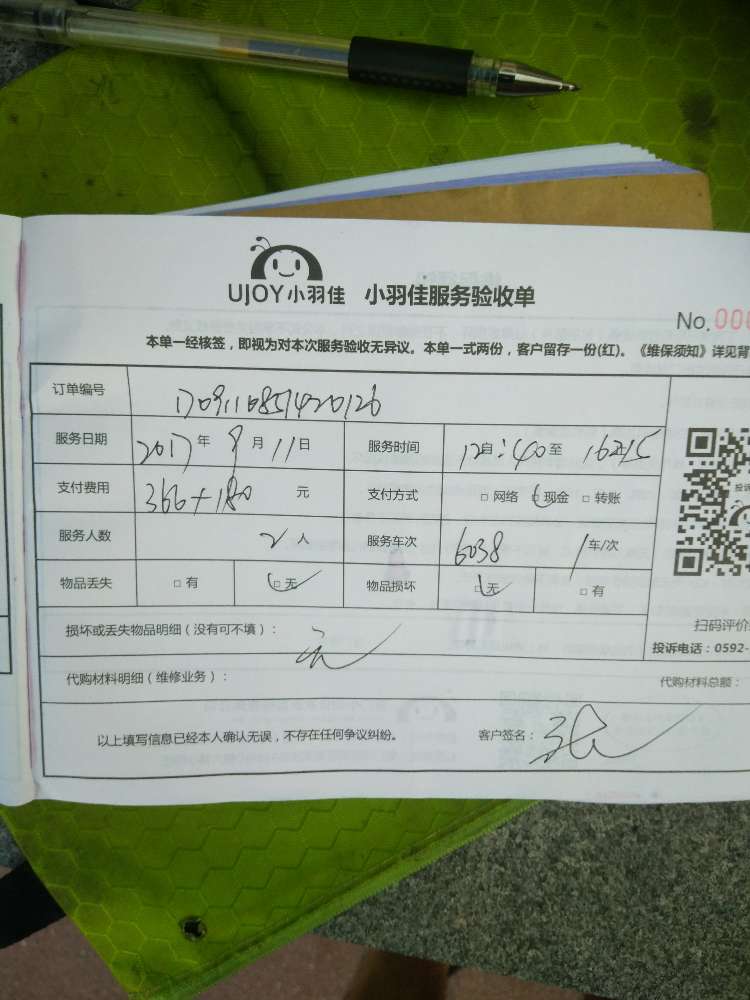 UJOY小羽佳 小羽佳服务验收单
No.000
本单一经核签，即视为对本次服务验收无异议。本单一式两份，客户留存一份(红)。《维保须知》详见背
订单编号 1709110851420126
服务日期 2017年9月11日 服务时间 12自:40至16:15
支付费用 366+180 元 支付方式 □网络 □现金 □转账
服务人数 2人 服务车次 6038 1车/次
物品丢失 □有 □无 物品损坏 □无 □有
损坏或丢失物品明细（没有可不填）： 无
扫码评价
投诉电话：0592-
代购材料明细（维修业务）： 代购材料总额：
以上填写信息已经本人确认无误，不存在任何争议纠纷。 客户签名：